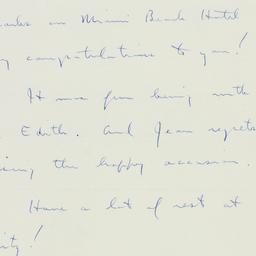 on Miami Beach Hotel
congratulations to you!
It was fun being with
Edith. And Jean regrets
the happy occasion.
Have a lot of rest at